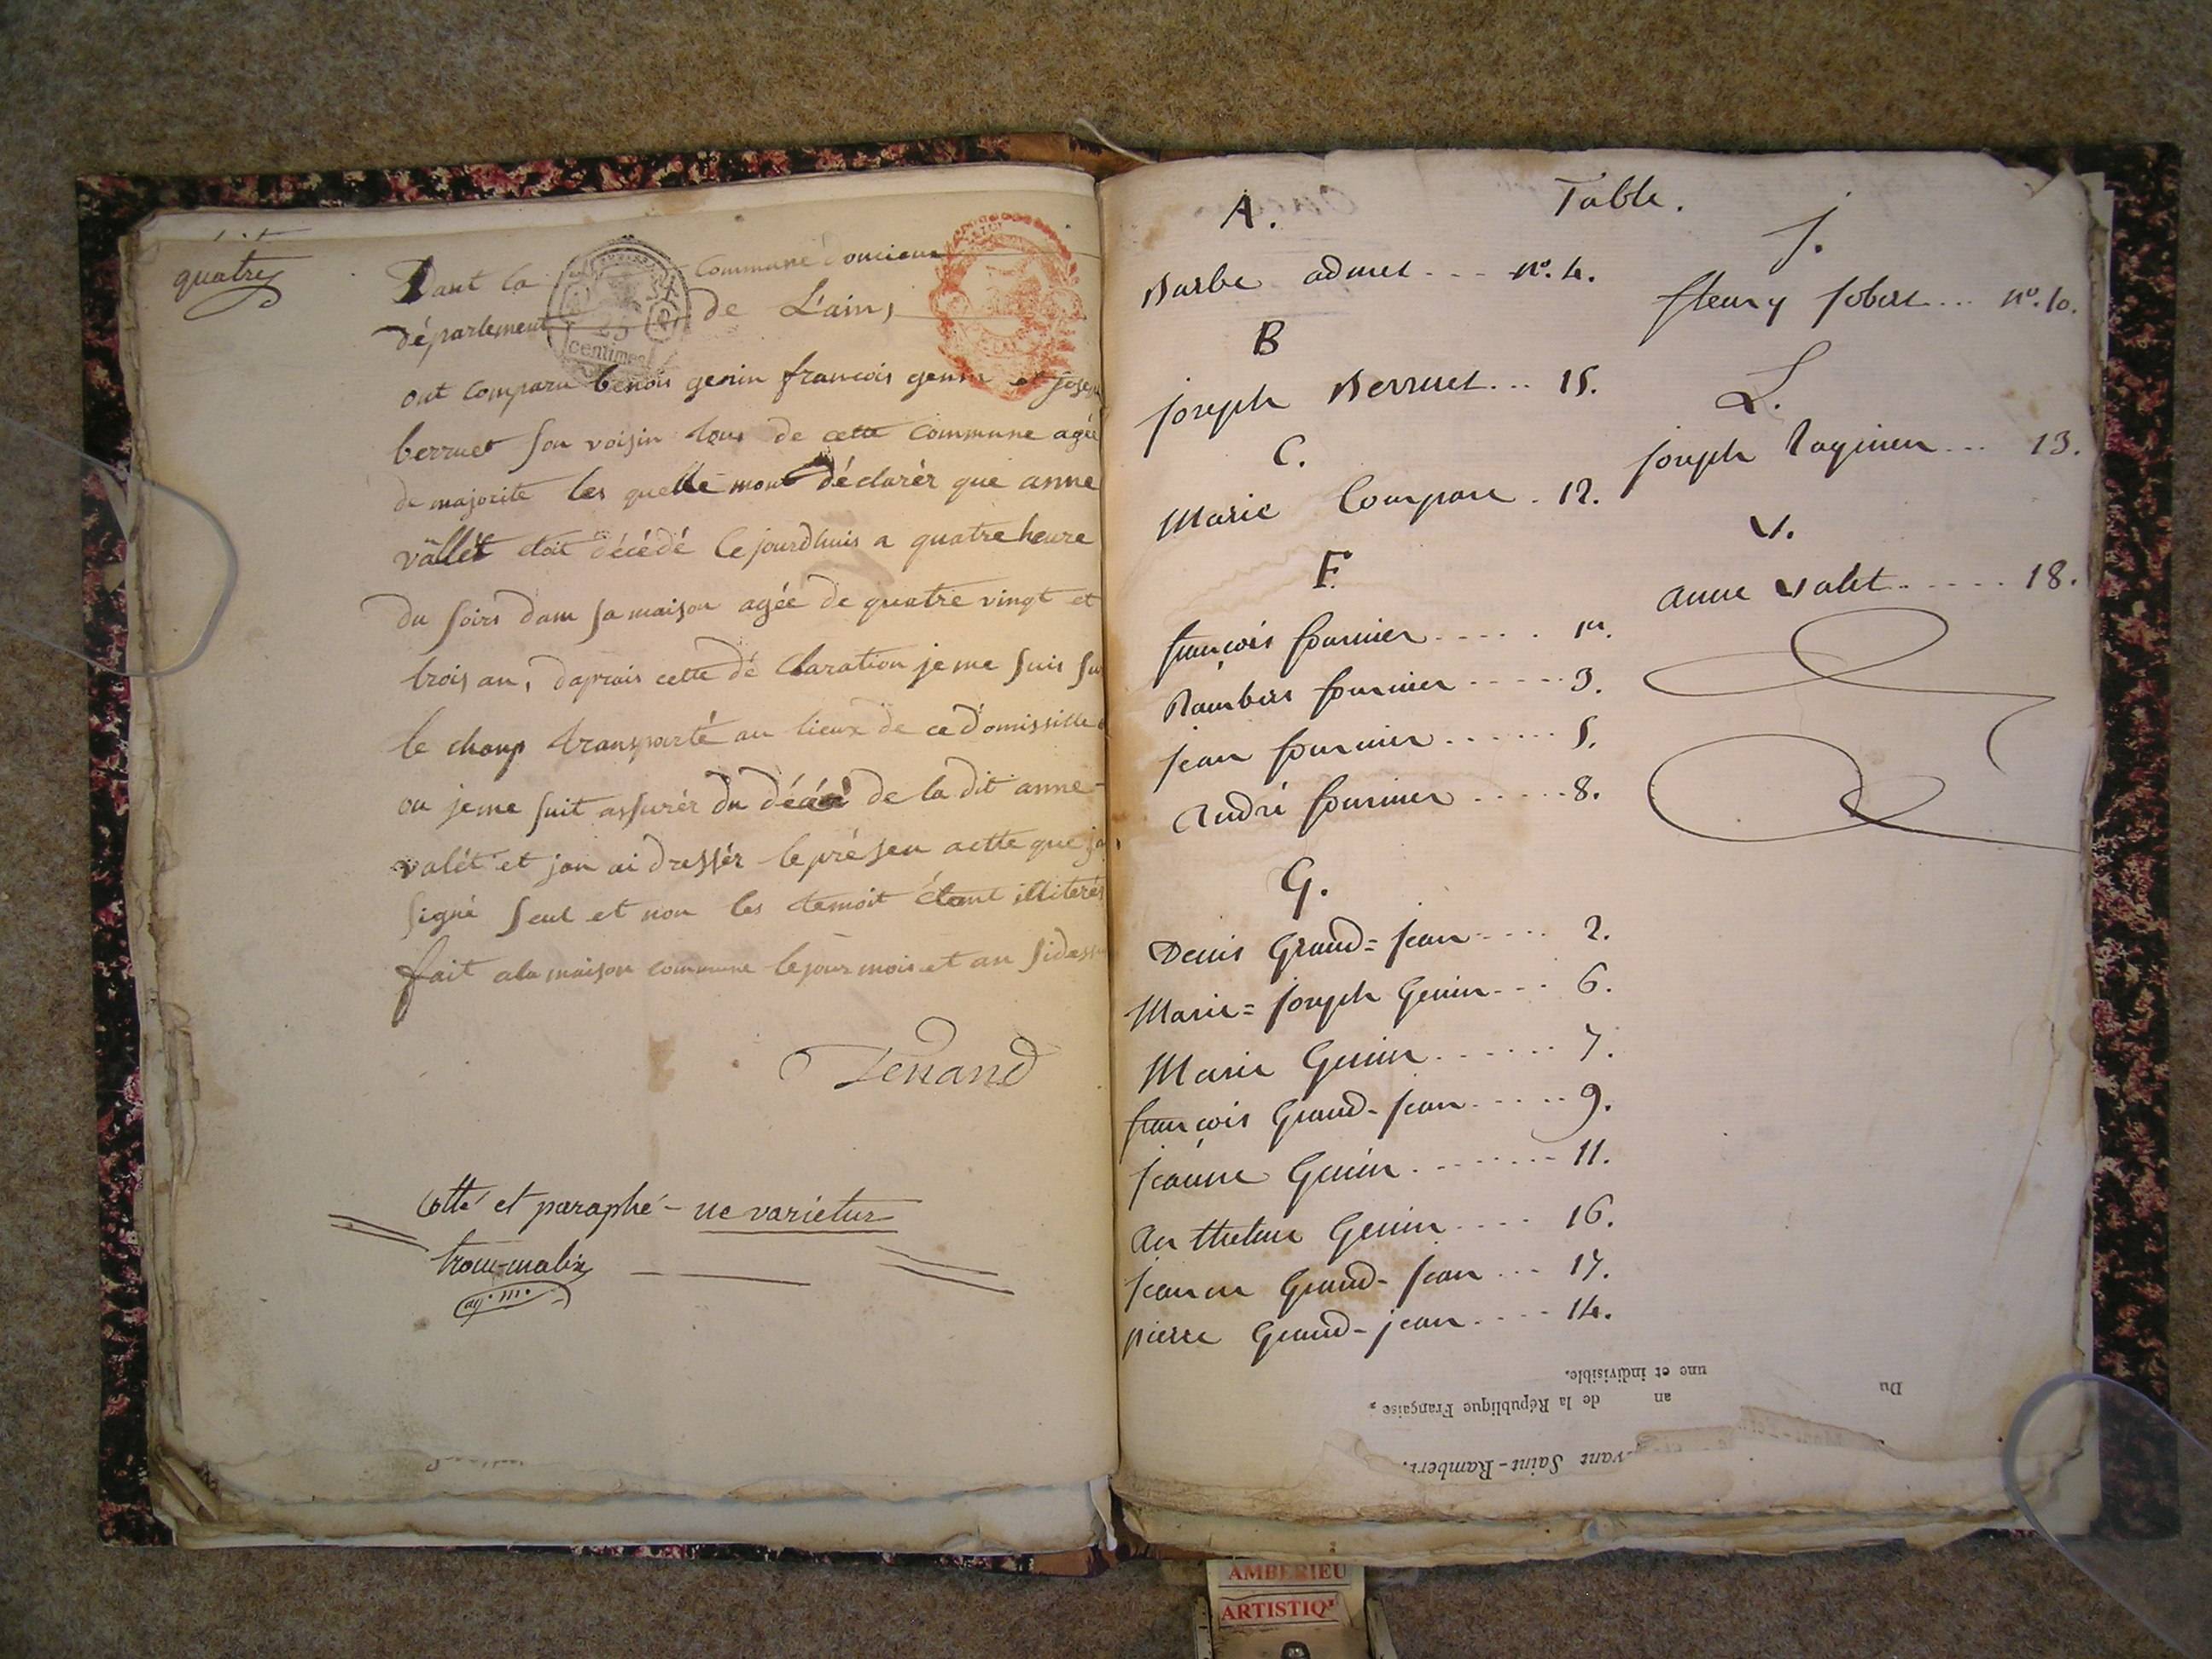 quatre
Dant la commune doncieux
département de L'ain,
25
centimes
ont comparu benois genin francois genin et josep
berruet son voisin tous de cette commune agée
de majorite les quelle mont déclarér que anne
vallét étoit décédé ce jourdhuis a quatre heure
du soirs dans sa maison agée de quatre vingt et
trois an, daprais cette dé claration je me suis su
le chanp transporté au lieux de ce domissille
ou je me suit assurér du décé de la dit anne
valét et jan ai dressér le présen actte que j'ai
signé seul et non les temoit étant illiterés
fait a la maison commune le jour mois et an sidessu
Tenand
Cotté et paraphé - ne varietur
trocu-malix
A. Table.
Barbe admet --- n°. 4.
B
joseph Berruet... 15.
C.
Marie Compare . 12.
F.
françois fournier ..... 1er.
Rambert fournier ..... 3.
jean fournier ...... 5.
André fournier ..... 8.
G.
Denis Grand=jean .... 2.
Marie=joseph Genin... 6.
Marie Genin ...... 7.
françois Grand-jean ..... 9.
jeanne Genin ....... 11.
Anthelme Genin .... 16.
jeanne Grand-jean ... 17.
pierre Grand-jean .... 14.
J.
fleury jobert ... n°. 10.
L.
joseph Laginen ... 13.
V.
anne valet ..... 18.
Du
an de la République Française,
une et indivisible.
vant Saint-Rambert.
AMBERIEU
ARTISTIQ